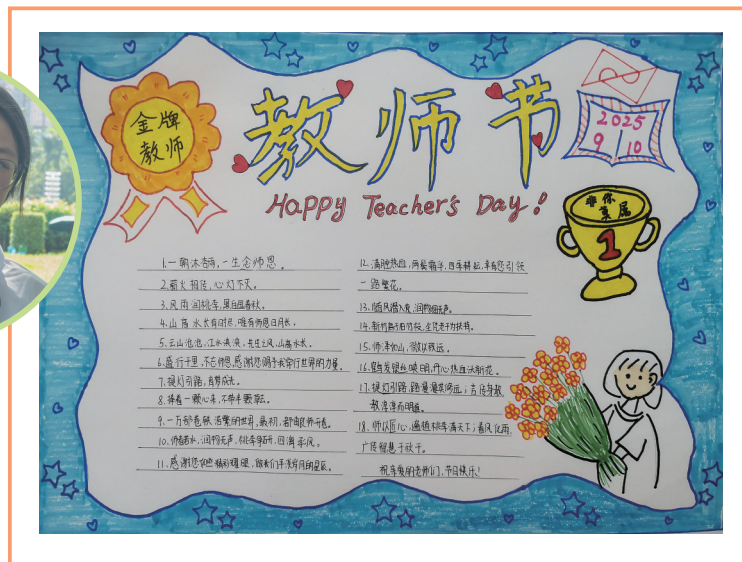 金牌
教师
教师节
2025
9 10
Happy Teacher's Day!
非你
莫属
1
1.一朝沐杏雨,一生念师恩。
2.薪火相传,心灯下天。
3.风雨润桃李,黑白画春秋。
4.山高水长有时尽,唯有师恩日月长。
5.云山苍苍,江水泱泱,先生之风,山高水长。
6.盛行千里,不忘师恩,感谢您赐予我穿行世界的力量。
7.提灯引路,育梦成长。
8.捧着一颗心来,不带半颗草去。
9.一万部卷帙浩繁的世界,最初,都由良师开卷。
10.师者如水,润物无声,桃李争妍,四海
11.感谢您的
12.满腔热血,两鬓霜华,四季耕耘,幸有您引领
一路繁花。
13.随风潜入夜,润物细无声。
14.新竹高于旧竹枝,全凭老干为扶持。
15.师泽如山,微以致远。
16.映日,丹心热血沃新花。
17.提灯引路,路漫漫其修远;言传身教,
教谆谆而明道。
18.师以匠心,遍植桃李满天下;春风化雨,
广传智慧于
祝亲爱的老师们,节日快乐!